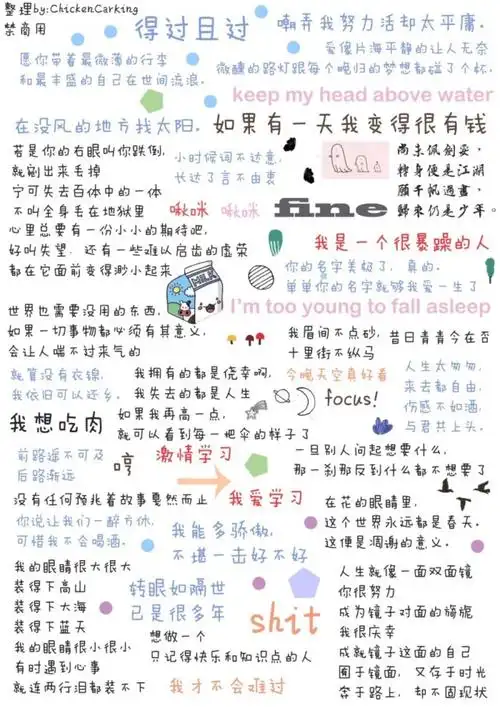 整理by:ChickenCarking
禁商用
得过且过
嘲弄我努力活却太平庸。
愿你带着最微薄的行李
和最丰盛的自己在世间流浪。
爱像片海平静的让人无奈
微醺的路灯跟每个晚归的梦想都碰了个杯.
keep my head above water
在没风的地方找太阳。
如果有一天我变得很有钱
若是你的右眼叫你跌倒,
就剜出来丢掉
宁可失去百体中的一体
不叫全身丢在地狱里
小时候词不达意,
长达了言不由衷
尚余佩剑妥,
转身便是江湖
愿千帆过尽,
归来仍是少年。
啾咪
啾咪
fine
心里总要有一份小小的期待吧,
好叫失望、还有一些难以启齿的虚荣
都在它面前变得渺小起来
我是一个很暴躁的人
你的名字美极了, 真的.
单单你的名字就够我爱一生了
MILK
I'm too young to fall asleep
世界也需要没用的东西,
如果一切事物都必须有其意义,
会让人喘不过来气的
我眉间不点砂,
十里街不纵马
昔日青青今在否
就算没有衣锦,
我依旧可以还乡。
我拥有的都是侥幸啊,
我失去的都是人生
今晚天空真好看
人生太匆匆,
来去都自由,
伤感不如酒,
与君共上头。
focus!
我想吃肉
如果我再高一点,
就可以看到每一把伞的样子了
前路遥不可及
后路渐远
哼
激情学习
一旦别人问起想要什么,
那一刹那反到什么都不想要了
没有任何预兆着故事戛然而止
我爱学习
在花的眼睛里,
这个世界永远都是春天。
这便是凋谢的意义。
你说让我们一醉方休,
可惜我不会喝酒。
我能多骄傲,
不堪一击好不好
我的眼睛很大很大
装得下高山
装得下大海
装得下蓝天
我的眼睛很小很小
有时遇到心事
就连两行泪都装不下
转眼如隔世
已是很多年
shit
想做一个
只记得快乐和知识点的人
我才不会难过
人生就像一面双面镜
你很努力
成为镜子对面的旖旎
我很庆幸
成就镜子这面的自己
囿于镜面, 又存于时光
奔于路上, 却不固现状